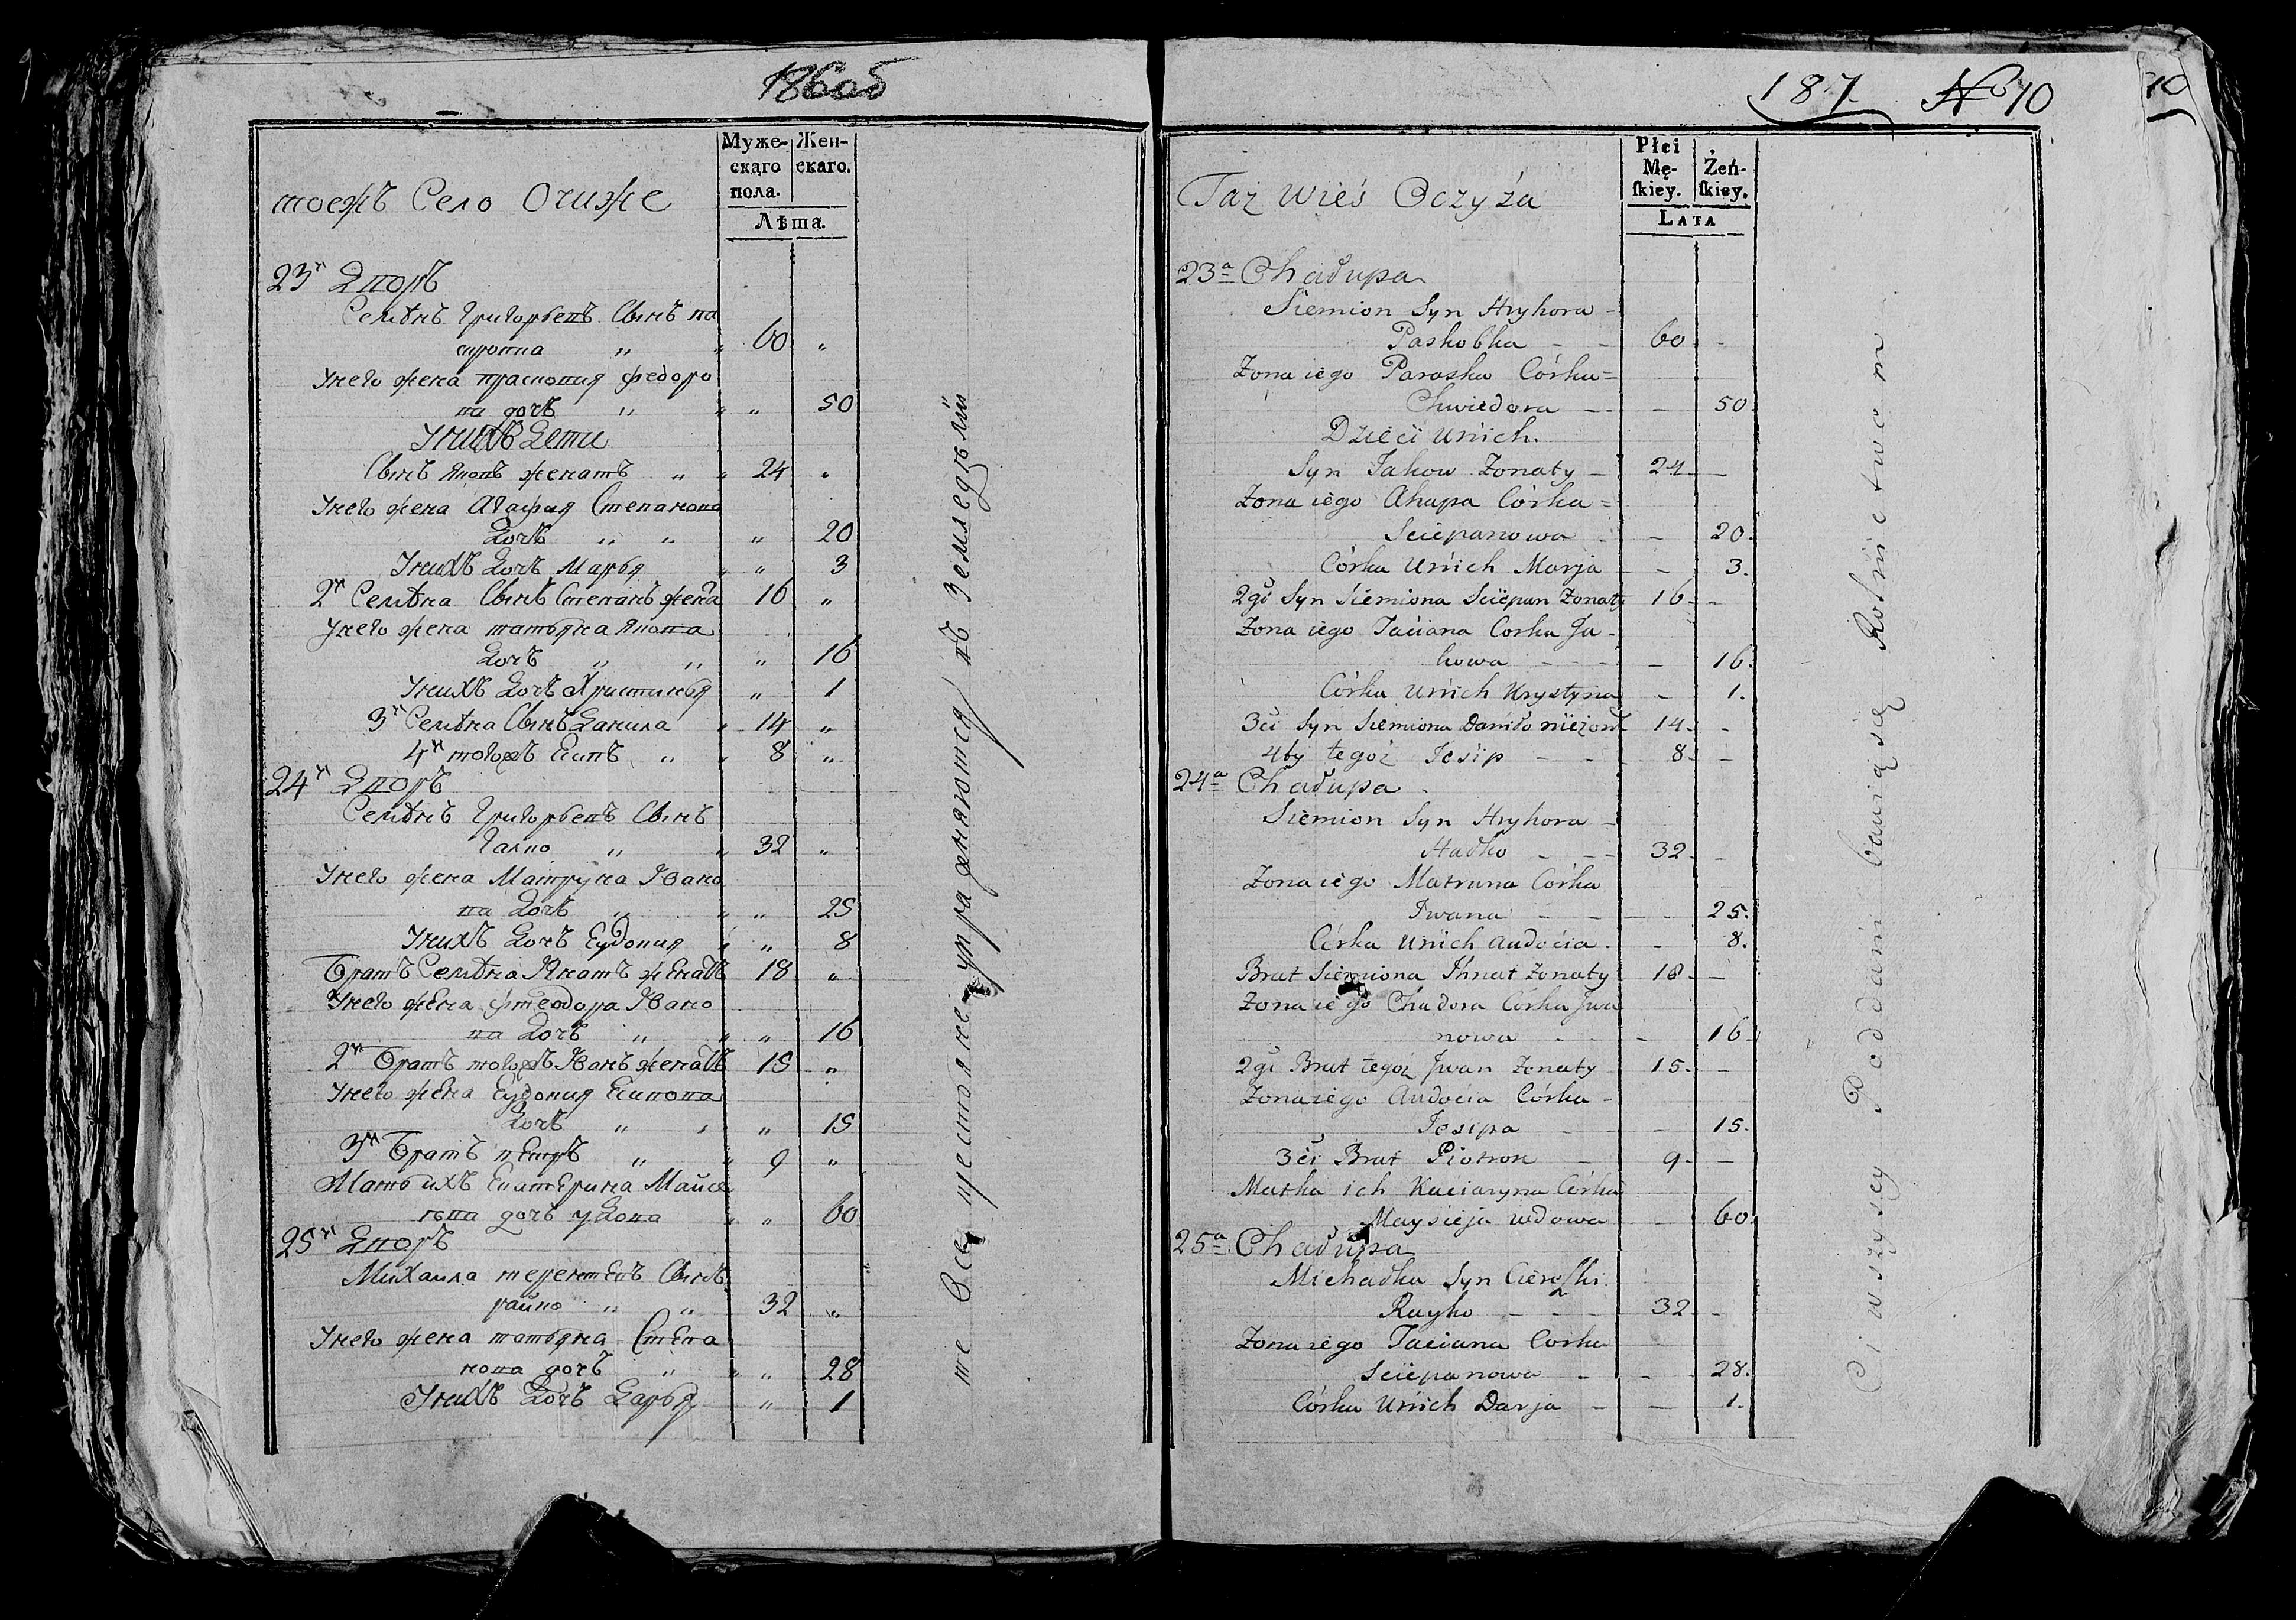 186об
Муже-
скаго
пола.
Жен-
скаго.
Лѣта.
тоежъ Село Очиже
23й Дворъ
Семѣнъ Григорьевъ Сынъ па
60 „
Унего жена прасковия федоро
ва дочь „ „ „ 50
Унихъ Дети
Сынъ Яковъ женатъ „ „ 24 „
Унего жена Агафия Степанова
Дочь „ „ „ 20
Унихъ Дочь Марья „ „ 3
2й Семѣна Сынъ Степанъ жена 16 „
Унего жена татьяна Якова
Дочь „ „ „ 16
Унихъ Дочь Христинья „ 1
3й Семѣна Сынъ Данила „ 14 „
4й тогожъ Есипъ „ „ 8 „
24й Дворъ
Семѣнъ Григорьевъ Сынъ
Галко „ „ 32 „
Унего жена Матруна Ивано
ва Дочь „ „ „ 25
Унихъ Дочь Еудокия „ „ 8
Братъ Семѣна Игнатъ женатъ 18 „
Унего жена фтеодора Ивано
ва Дочь „ „ „ 16
2й Братъ тогожъ Иванъ женатъ 15 „
Унего жена Еудокия Есипова
Дочь „ „ „ 15
3й Братъ петръ „ „ 9 „
Мать ихъ Екатерина Майсе
ева дочь удова „ „ 60
25й Дворъ
Михаила терентевъ Сынъ
райко „ „ 32 „
Унего жена татьяна Степа
нова дочь „ „ „ 28
Унихъ Дочь Дарья „ 1
те Все крестьяне упражняются въ Земледѣлiи
187 № 10
10
Płci
Mę-
ſkiey.
Żeń-
ſkiey.
LATA
Taż Wieś Oczyża
23a Chałupa
Siemion Syn Hryhora -
Paskobka - - 60 -
Zona iego Paraska Córka =
Chwiedora - - - 50.
Dzieci Unich.
Syn Jakow Zonaty - 24 -
Zona iego Ahapa Córka =
Sciepanowa - - 20.
Córka Unich Marja - - 3.
2gi Syn Siemiona Sciepan Zonaty 16 -
Zona iego Taciana Corka Ja -
kowa - - - - 16.
Córka Unich Krystyna - 1.
3ci Syn Siemiona Daniło nieżon 14 -
4ty tegoż Josip - - - 8 -
24a Chałupa .
Siemion Syn Hryhora -
Hałko - - - 32 -
Zona iego Matruna Corka
Jwana - - - - 25.
Córka Unich Audocia . - 8.
Brat Siemiona Ihnat Zonaty 18 -
Zona iego Chadora Córka Jwa
nowa - - - 16.
2gi Brat tegoż Jwan Zonaty 15 -
Zona iego Audocia Córka -
Josipa - - 15.
3ci Brat Piotrok - 9 -
Matka ich Kaciaryna Córka
Maysieja wdowa - 60.
25a Chałupa
Michałka Syn
Rayko - - - 32 -
Zona iego Taciana Corka
Sciepanowa - - - 28.
Córka Unich Darja - - 1.
Ci wszyscy Poddani bawią się Rolnictwem